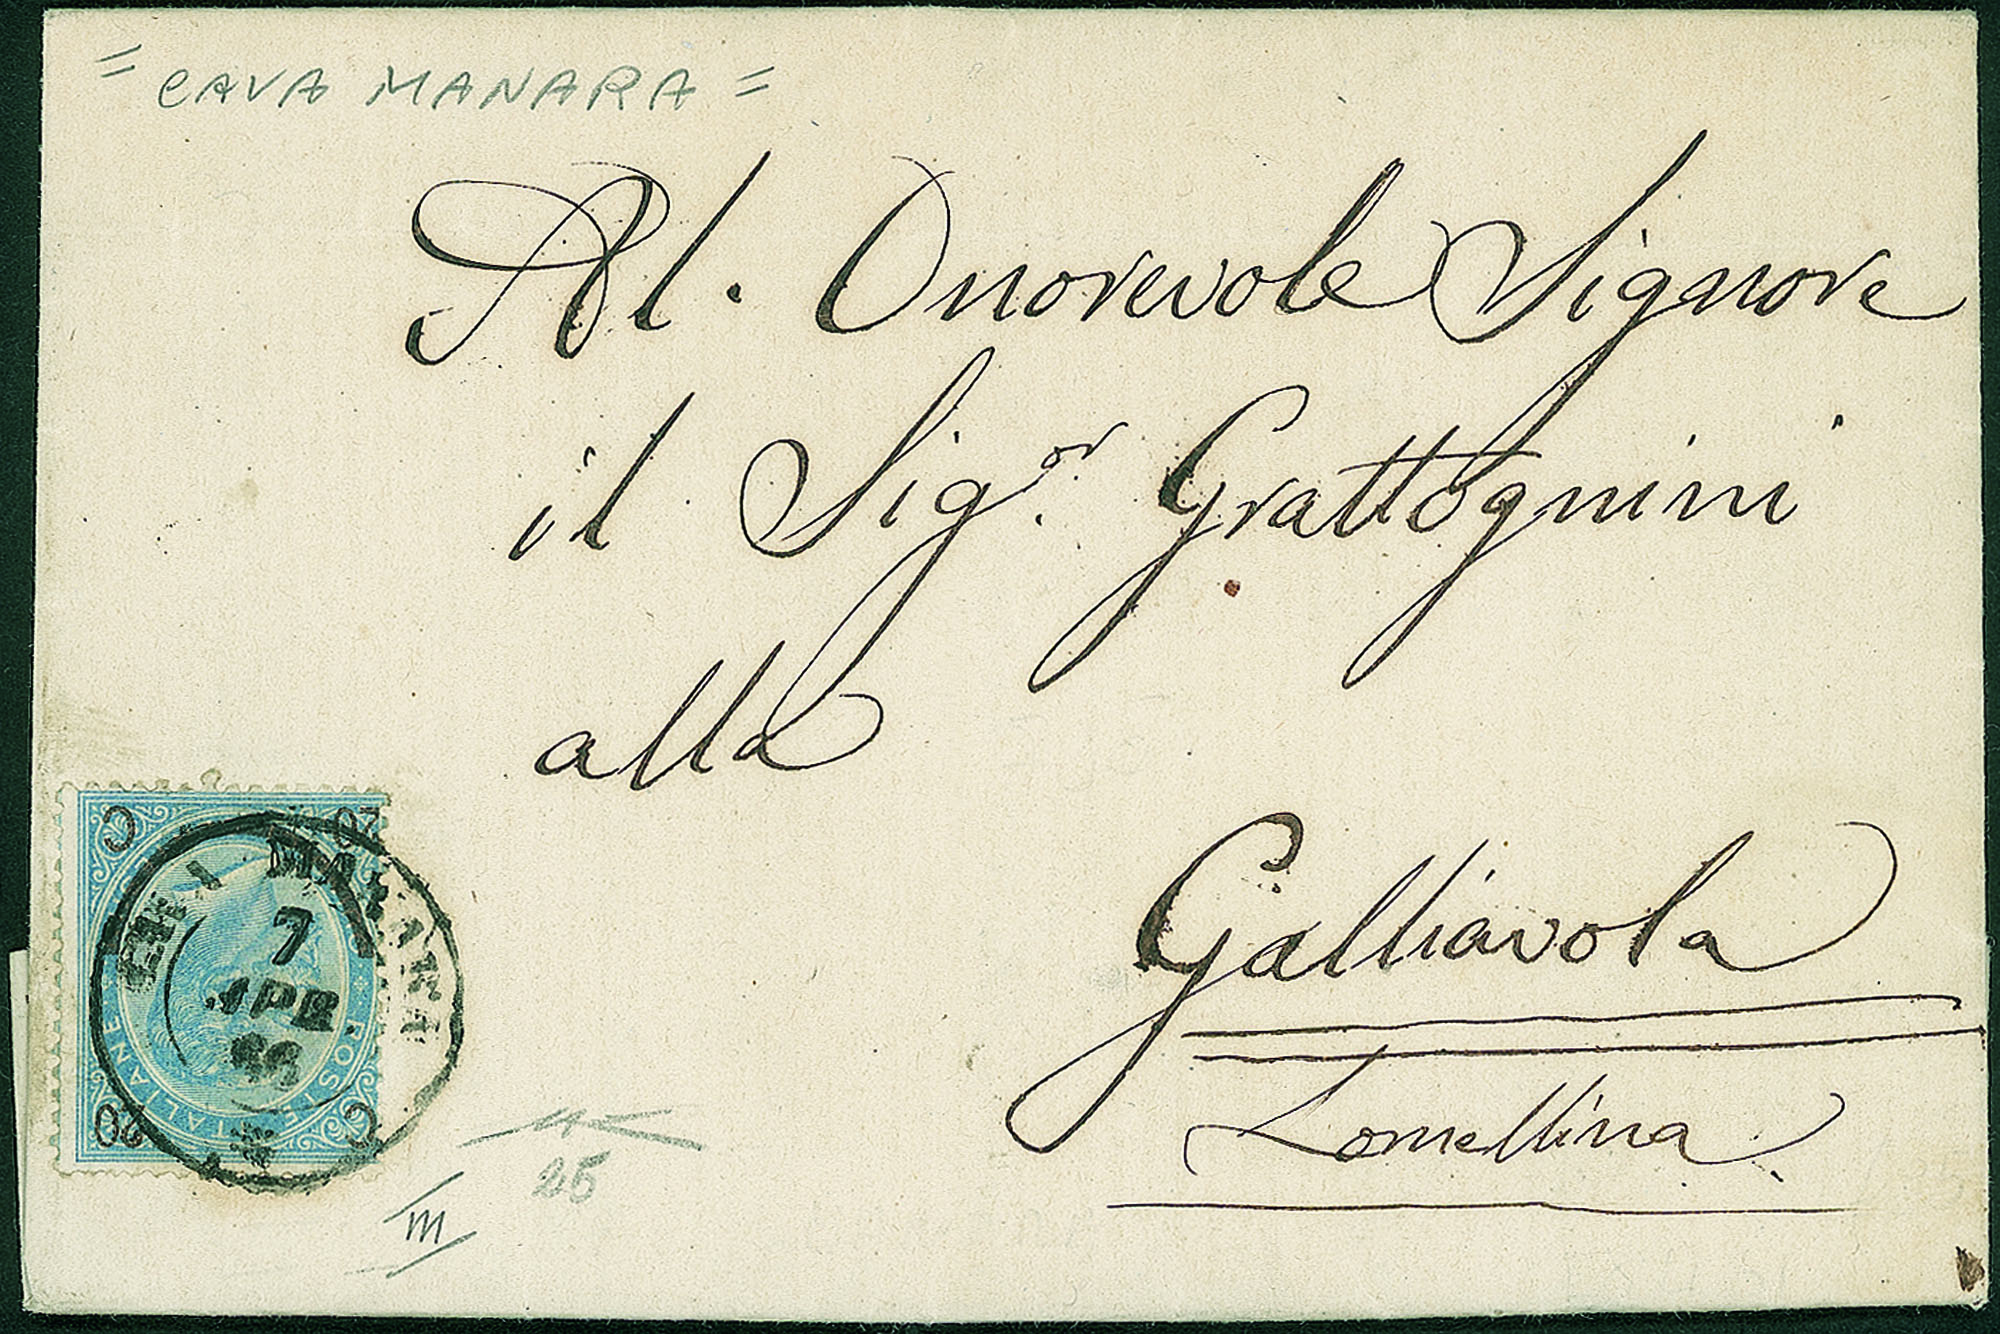 = CAVA MANARA =
Al. Onorevole Signore
il Sig.or Grattognini
alla
Galliavola
Lomellina
C 20
7
APR.
66
20 C
POSTE ITALIANE
25